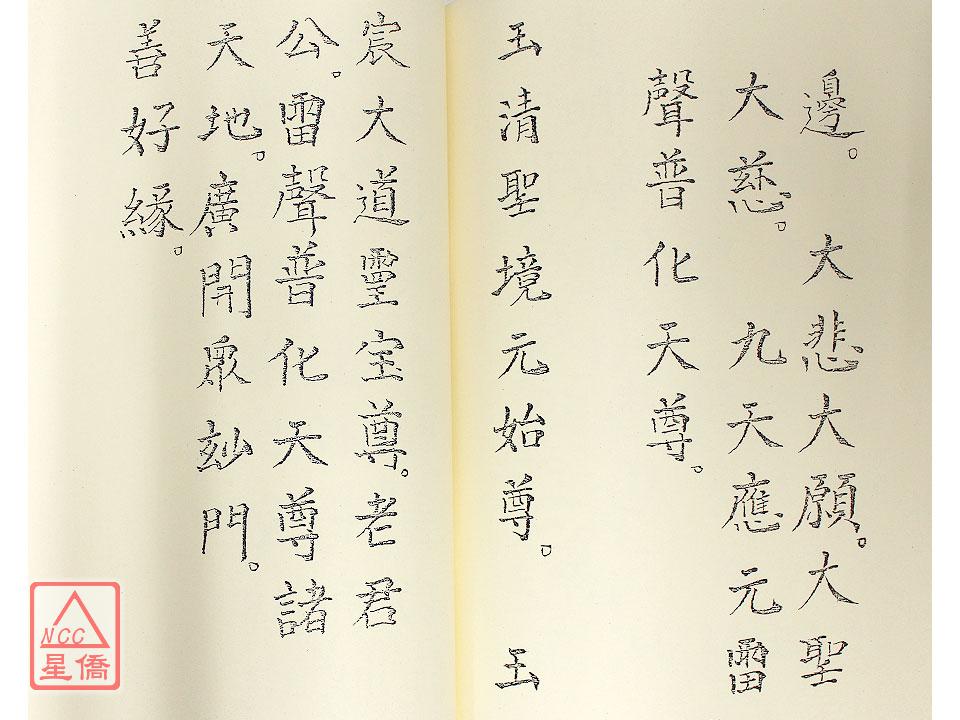 邊。大悲大願。大聖
大慈。九天應元雷
聲普化天尊。
玉清聖境元始尊。 玉
宸大道靈宝尊。老君
公。雷聲普化天尊諸
天地。廣開衆玅門。
善好緣。
NCC
星僑